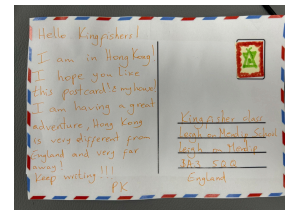 Hello Kingfishers!
I am in Hong Kong!
I hope you like
this postcard & my house!
I am having a great
adventure, Hong Kong
is very different from
England and very far
away!
Keep writing!!!
PK
Kingfisher class
Leigh on Mendip School
Leigh on Mendip
BA3 5QQ
England